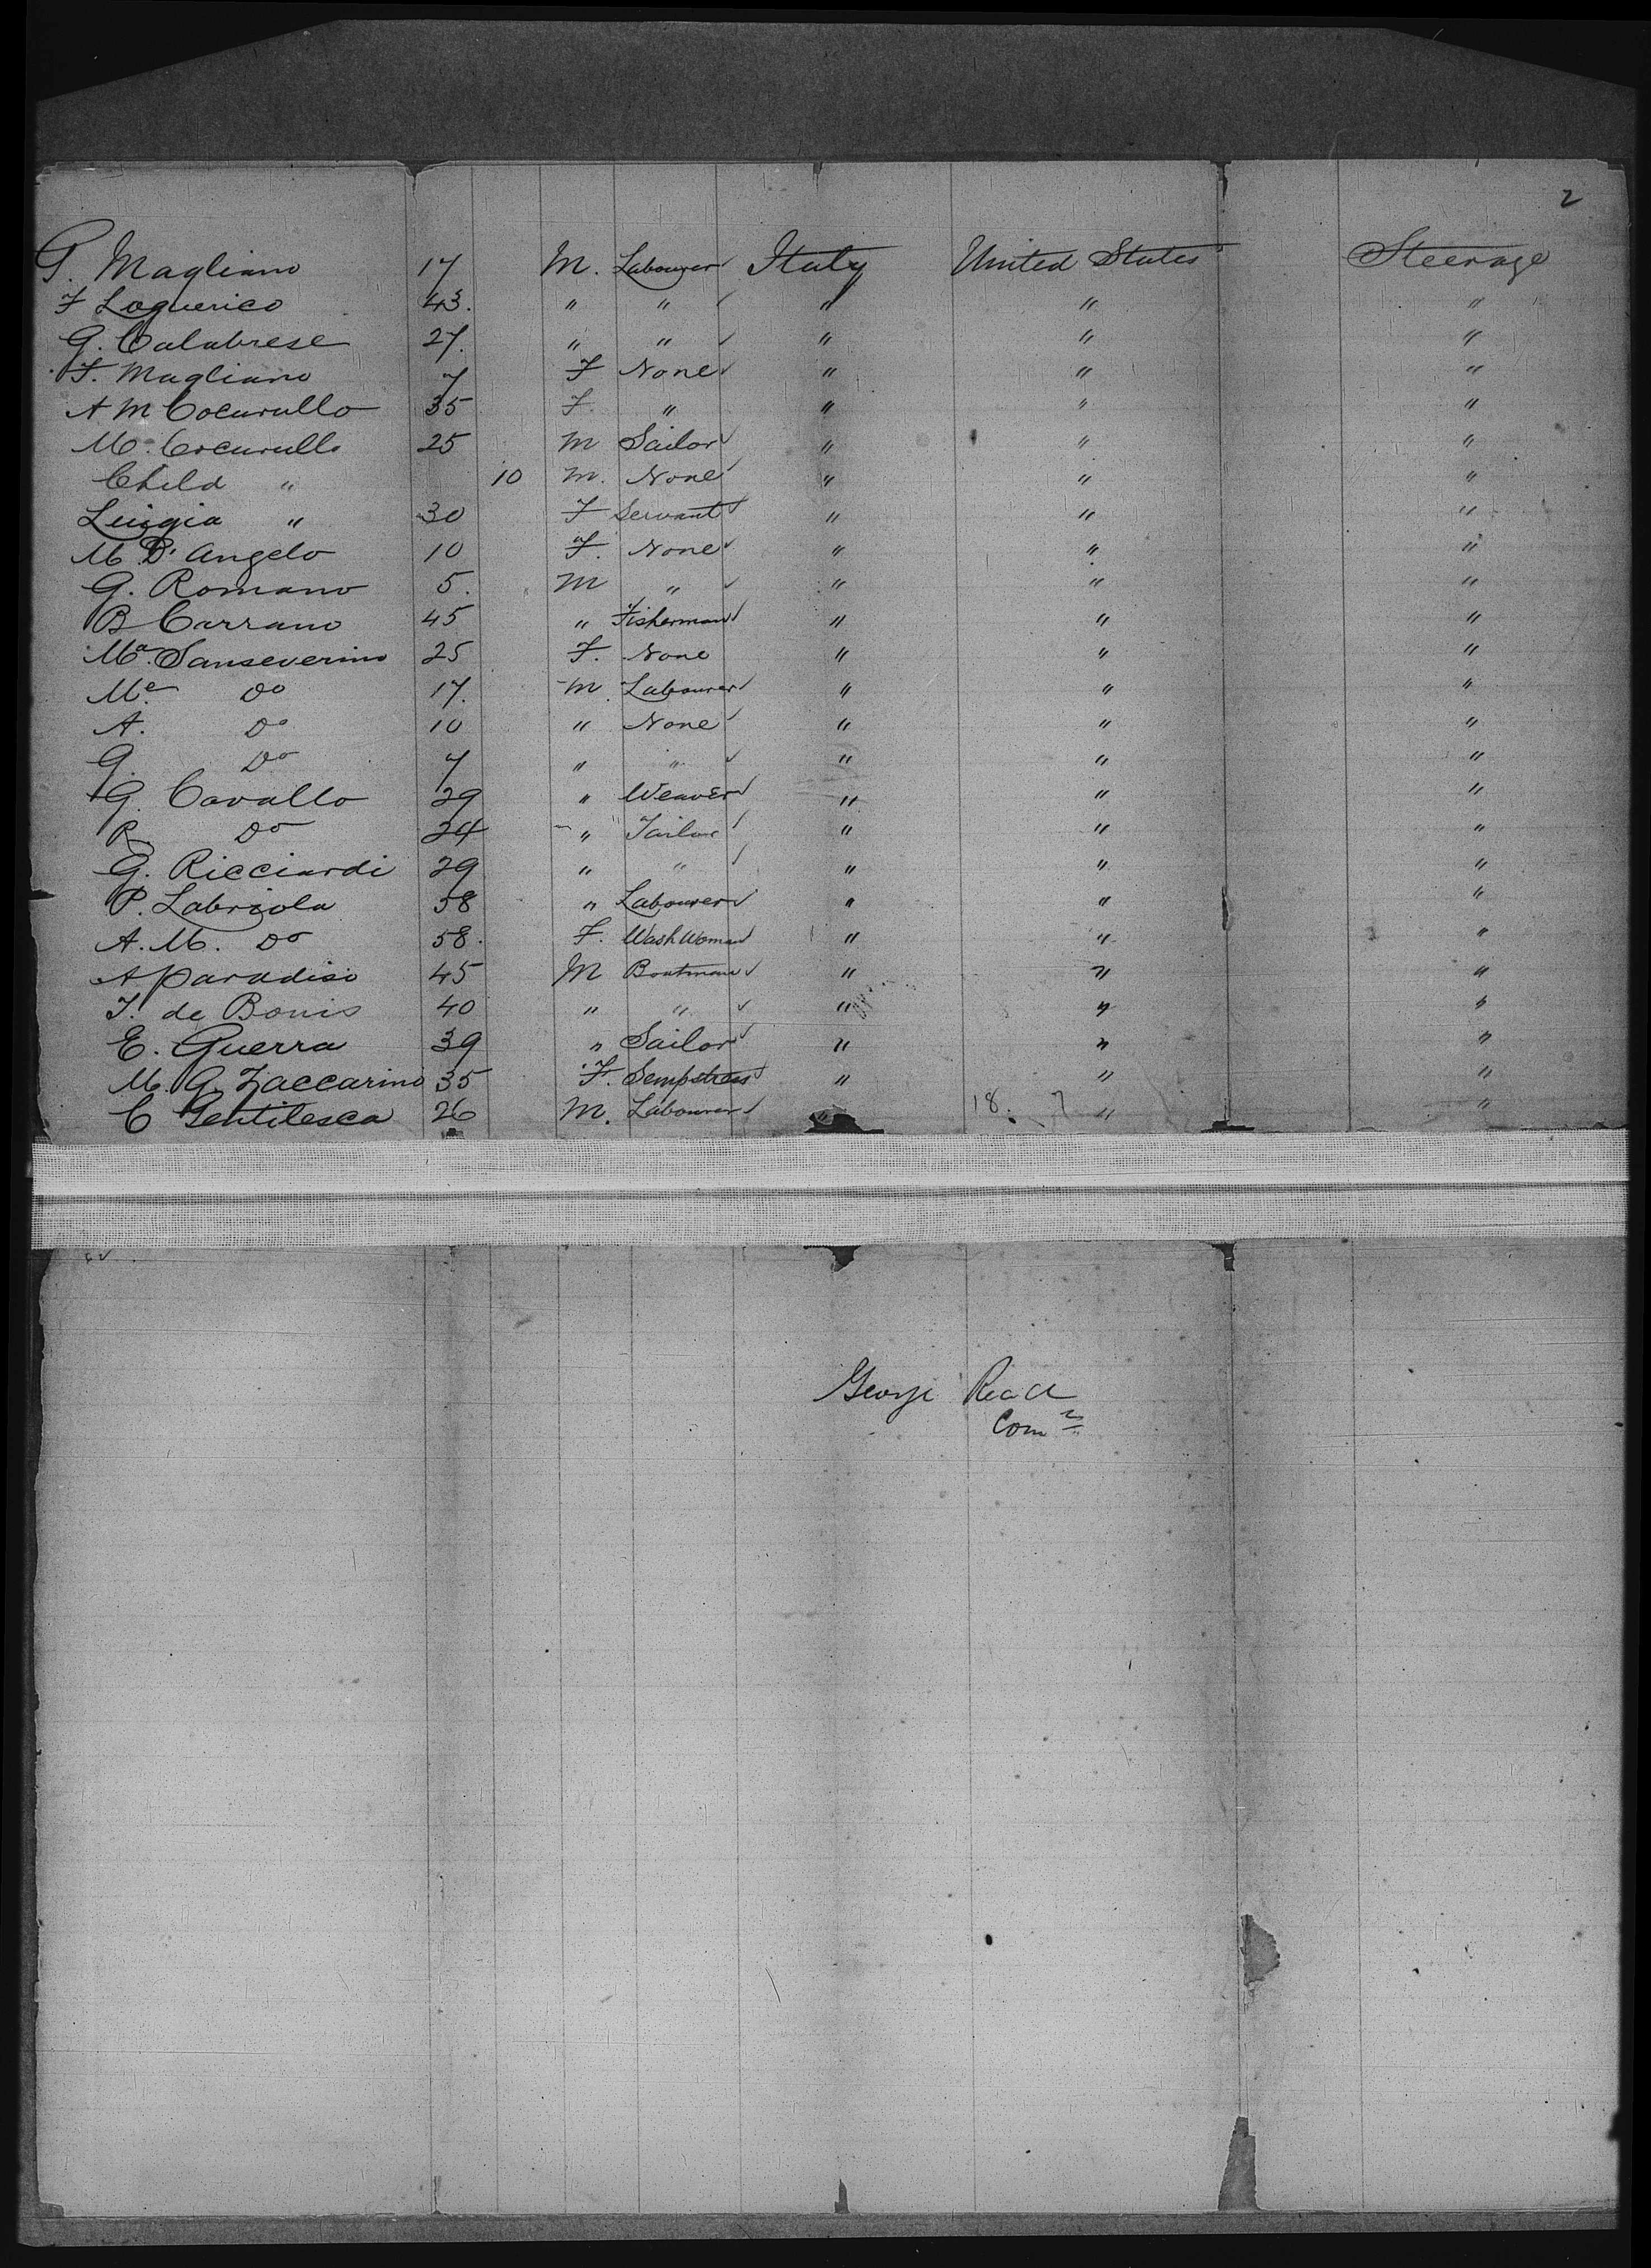 2
G. Magliano 17 M. Labourer Italy United States Steerage
F Loguerico 43. " " " " "
G. Calabrese 27. " " " " "
F. Magliano 7 F None " " "
A M Cocurullo 35 F. " " " "
M. Cocurullo 25 M Sailor " " "
Child " 10 M. None " " "
Luigia " 30 F Servant " " "
M D'Angelo 10 F. None " " "
G. Romano 5. M " " " "
B Carrano 45 " Fisherman " " "
Ma. Sanseverino 25 F. None " " "
Me. Do 17. M Labourer " " "
A. Do 10 " None " " "
G. Do 7 " " " " "
G. Cavallo 29 " Weaver " " "
R Do 24 " Tailor " " "
G. Ricciardi 29 " " " " "
P. Labriola 58 " Labourer " " "
A. M. Do 58. F. Wash Woman " " "
A Paradiso 45 M Boatman " " "
F. de Bonis 40 " " " " "
E. Guerra 39 " Sailor " " "
M. G. Zaccarino 35 F. Sempstress " " "
C Gentilesca 26 M. Labourer " 18. 7 " "
George Read
Comr